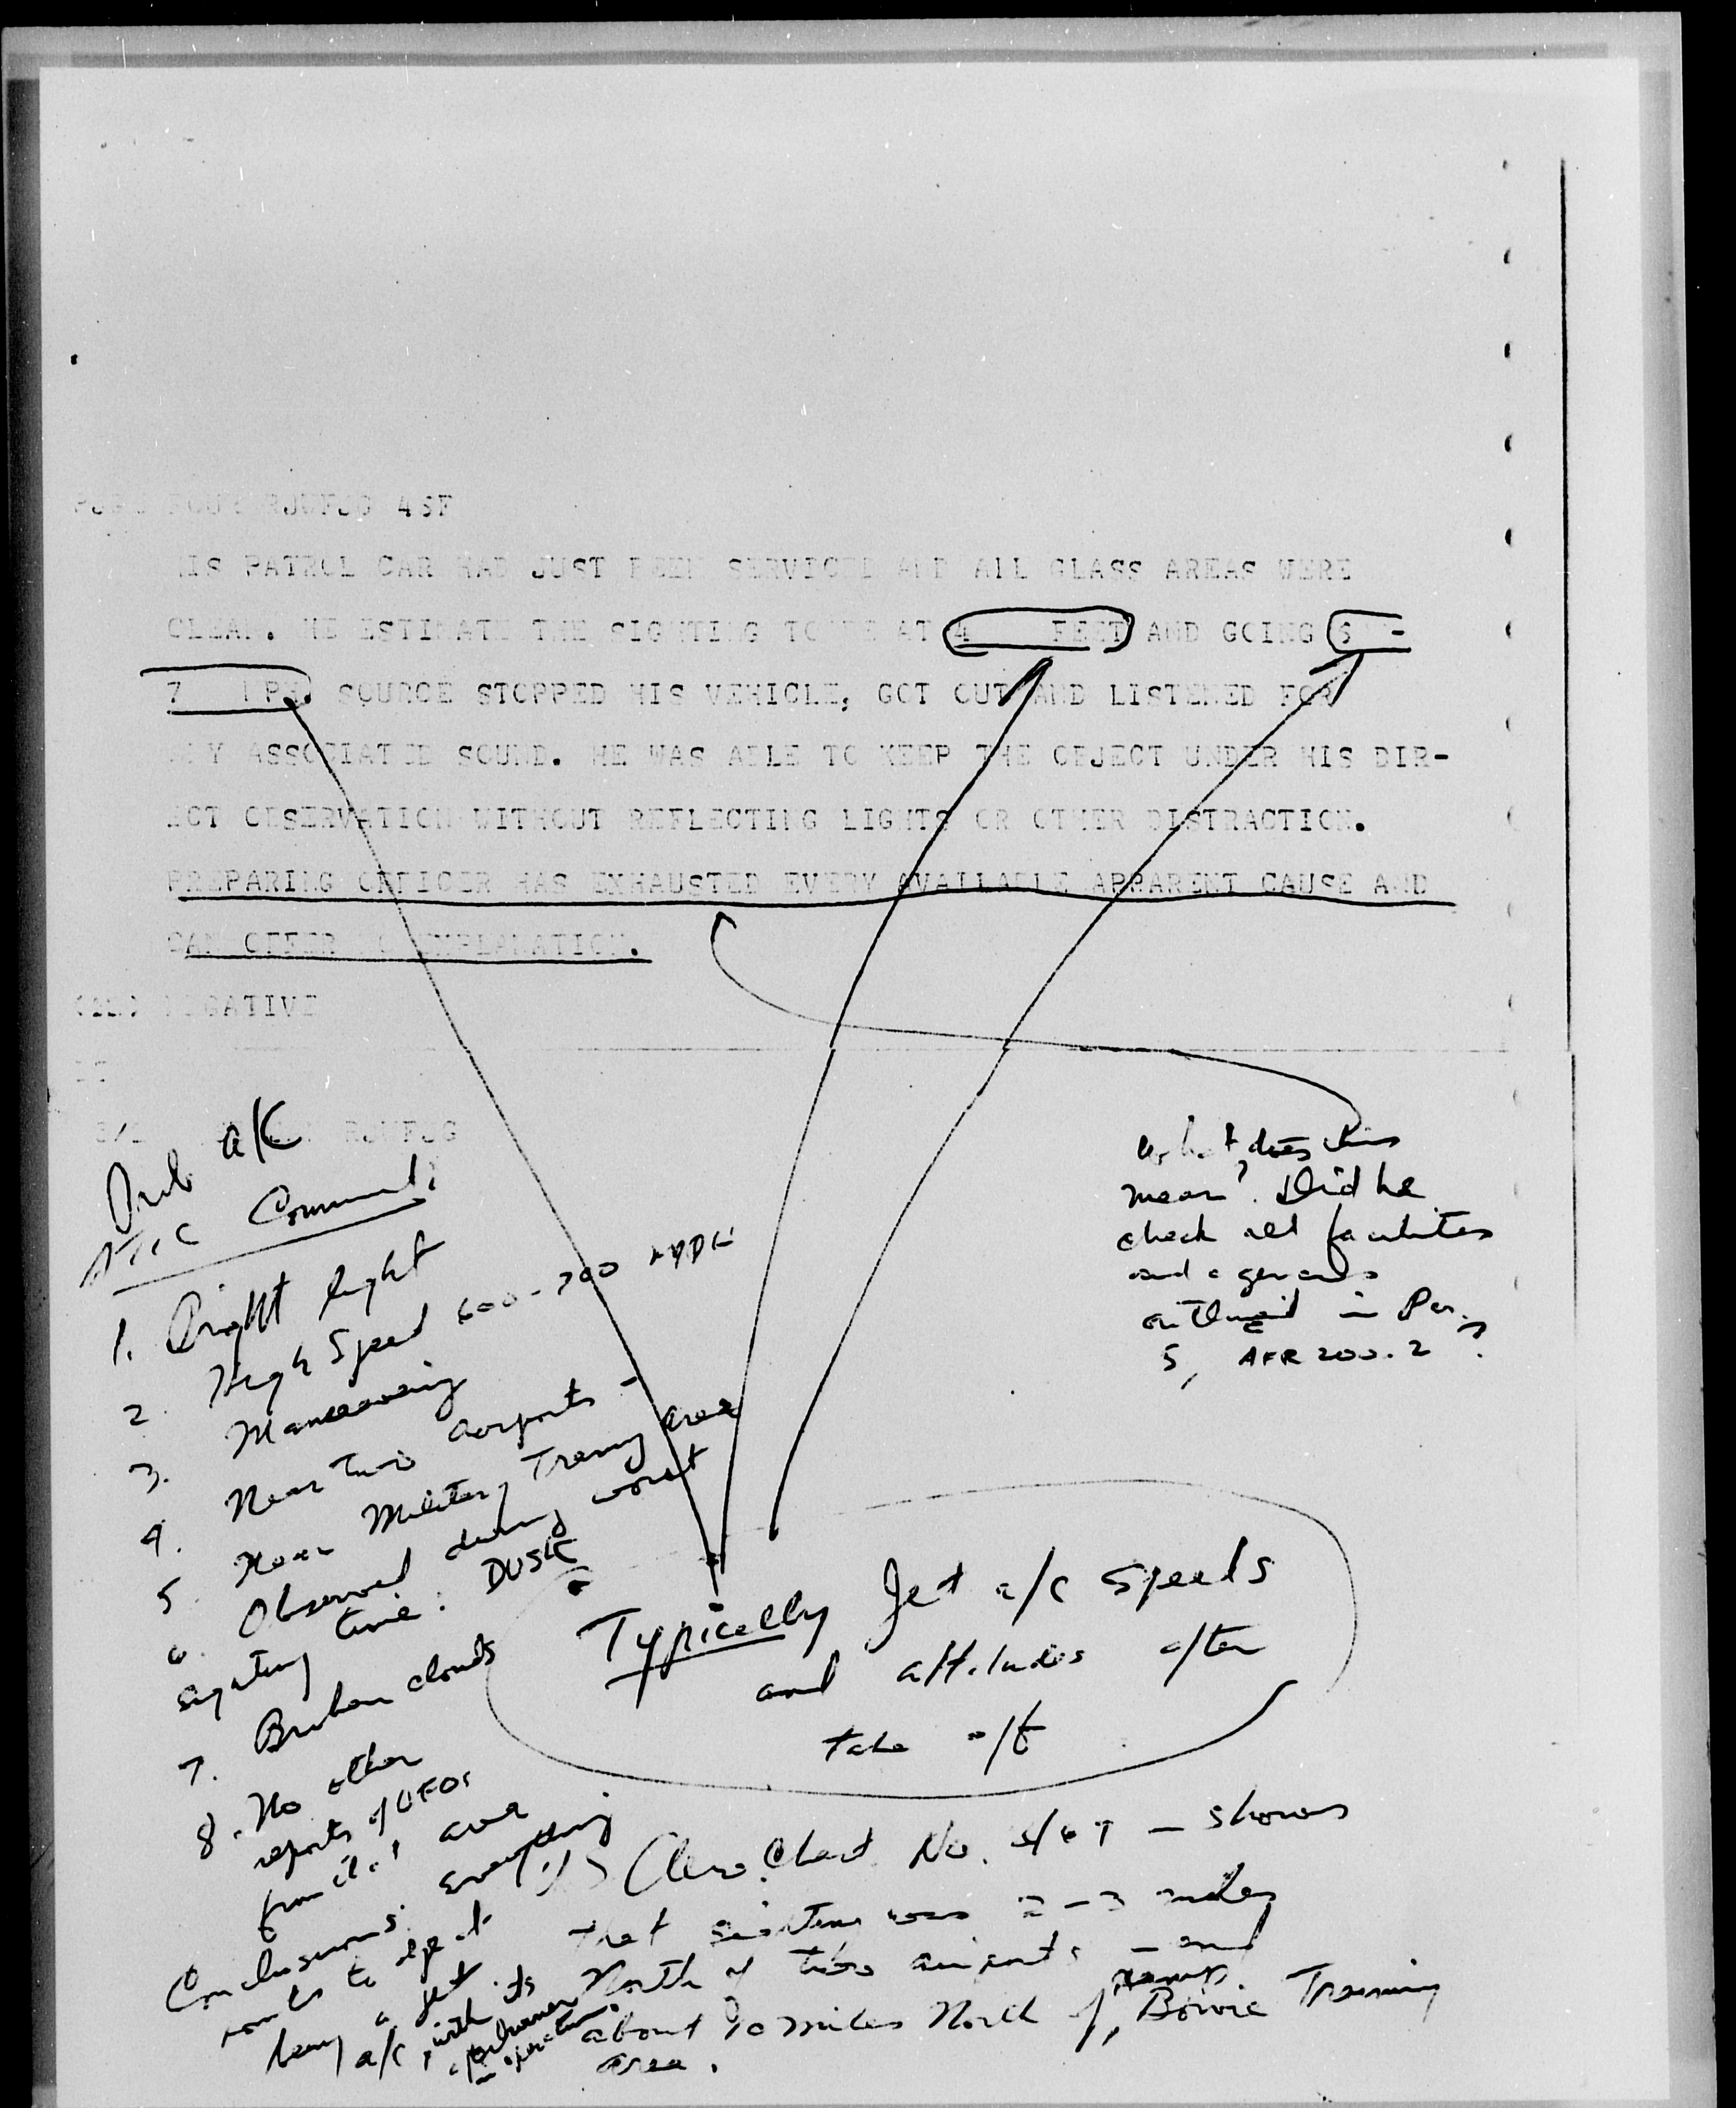 RJUFJG 46F
HIS PATROL CAR HAD JUST BEEN SERVICED AND ALL GLASS AREAS WERE
CLEAN. HE ESTIMATE THE SIGHTING TO BE AT 4 FEET AND GOING 6 -
7 MPH. SOURCE STOPPED HIS VEHICLE, GOT OUT AND LISTENED FOR
ANY ASSOCIATED SOUND. HE WAS ABLE TO KEEP THE OBJECT UNDER HIS DIR-
ECT OBSERVATION WITHOUT REFLECTING LIGHTS OR OTHER DISTRACTION.
PREPARING OFFICER HAS EXHAUSTED EVERY AVAILABLE APPARENT CAUSE AND
CAN OFFER NO EXPLANATION.
NEGATIVE
BT
RJUFJG
What does this
mean? Did he
check all facilities
and agencies
outlined in Par.
5, AFR 200-2?
Prob a/c
ATIC Comment:
1. Bright light
2. High Speed 600-700 MPH
3. Maneuvering
4. Near two airports -
5. Near Military Training area
6. Observed during worst
sighting time: DUSK
7. Broken clouds
8. No other
reports of UFOs
from that area
Conclusions: everything
points to object
being a jet
a/c, with its
in operation.
Typically Jet a/c speeds
and altitudes after
take off
Aero Chart No. - shows
that sighting was 2-3 miles
North of two airports - and
about 20 miles North of Bowie Training
area.